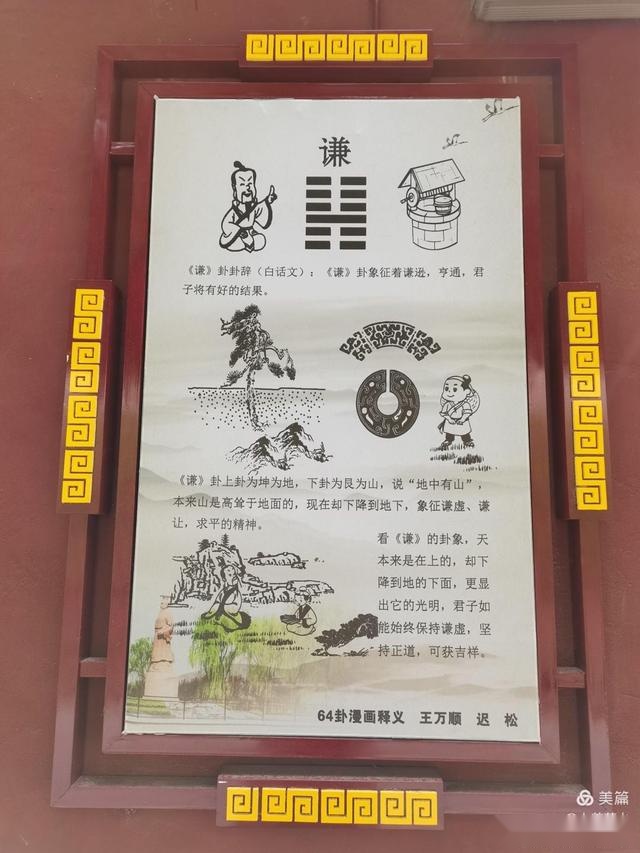 谦
《谦》卦卦辞（白话文）：《谦》卦象征着谦逊，亨通，君
子将有好的结果。
《谦》卦上卦为坤为地，下卦为艮为山，说“地中有山”，
本来山是高耸于地面的，现在却下降到地下，象征谦虚、谦
让，求平的精神。
看《谦》的卦象，天
本来是在上的，却下
降到地的下面，更显
出它的光明，君子如
能始终保持谦虚，坚
持正道，可获吉祥。
64卦漫画释义 王万顺 迟 松
美篇